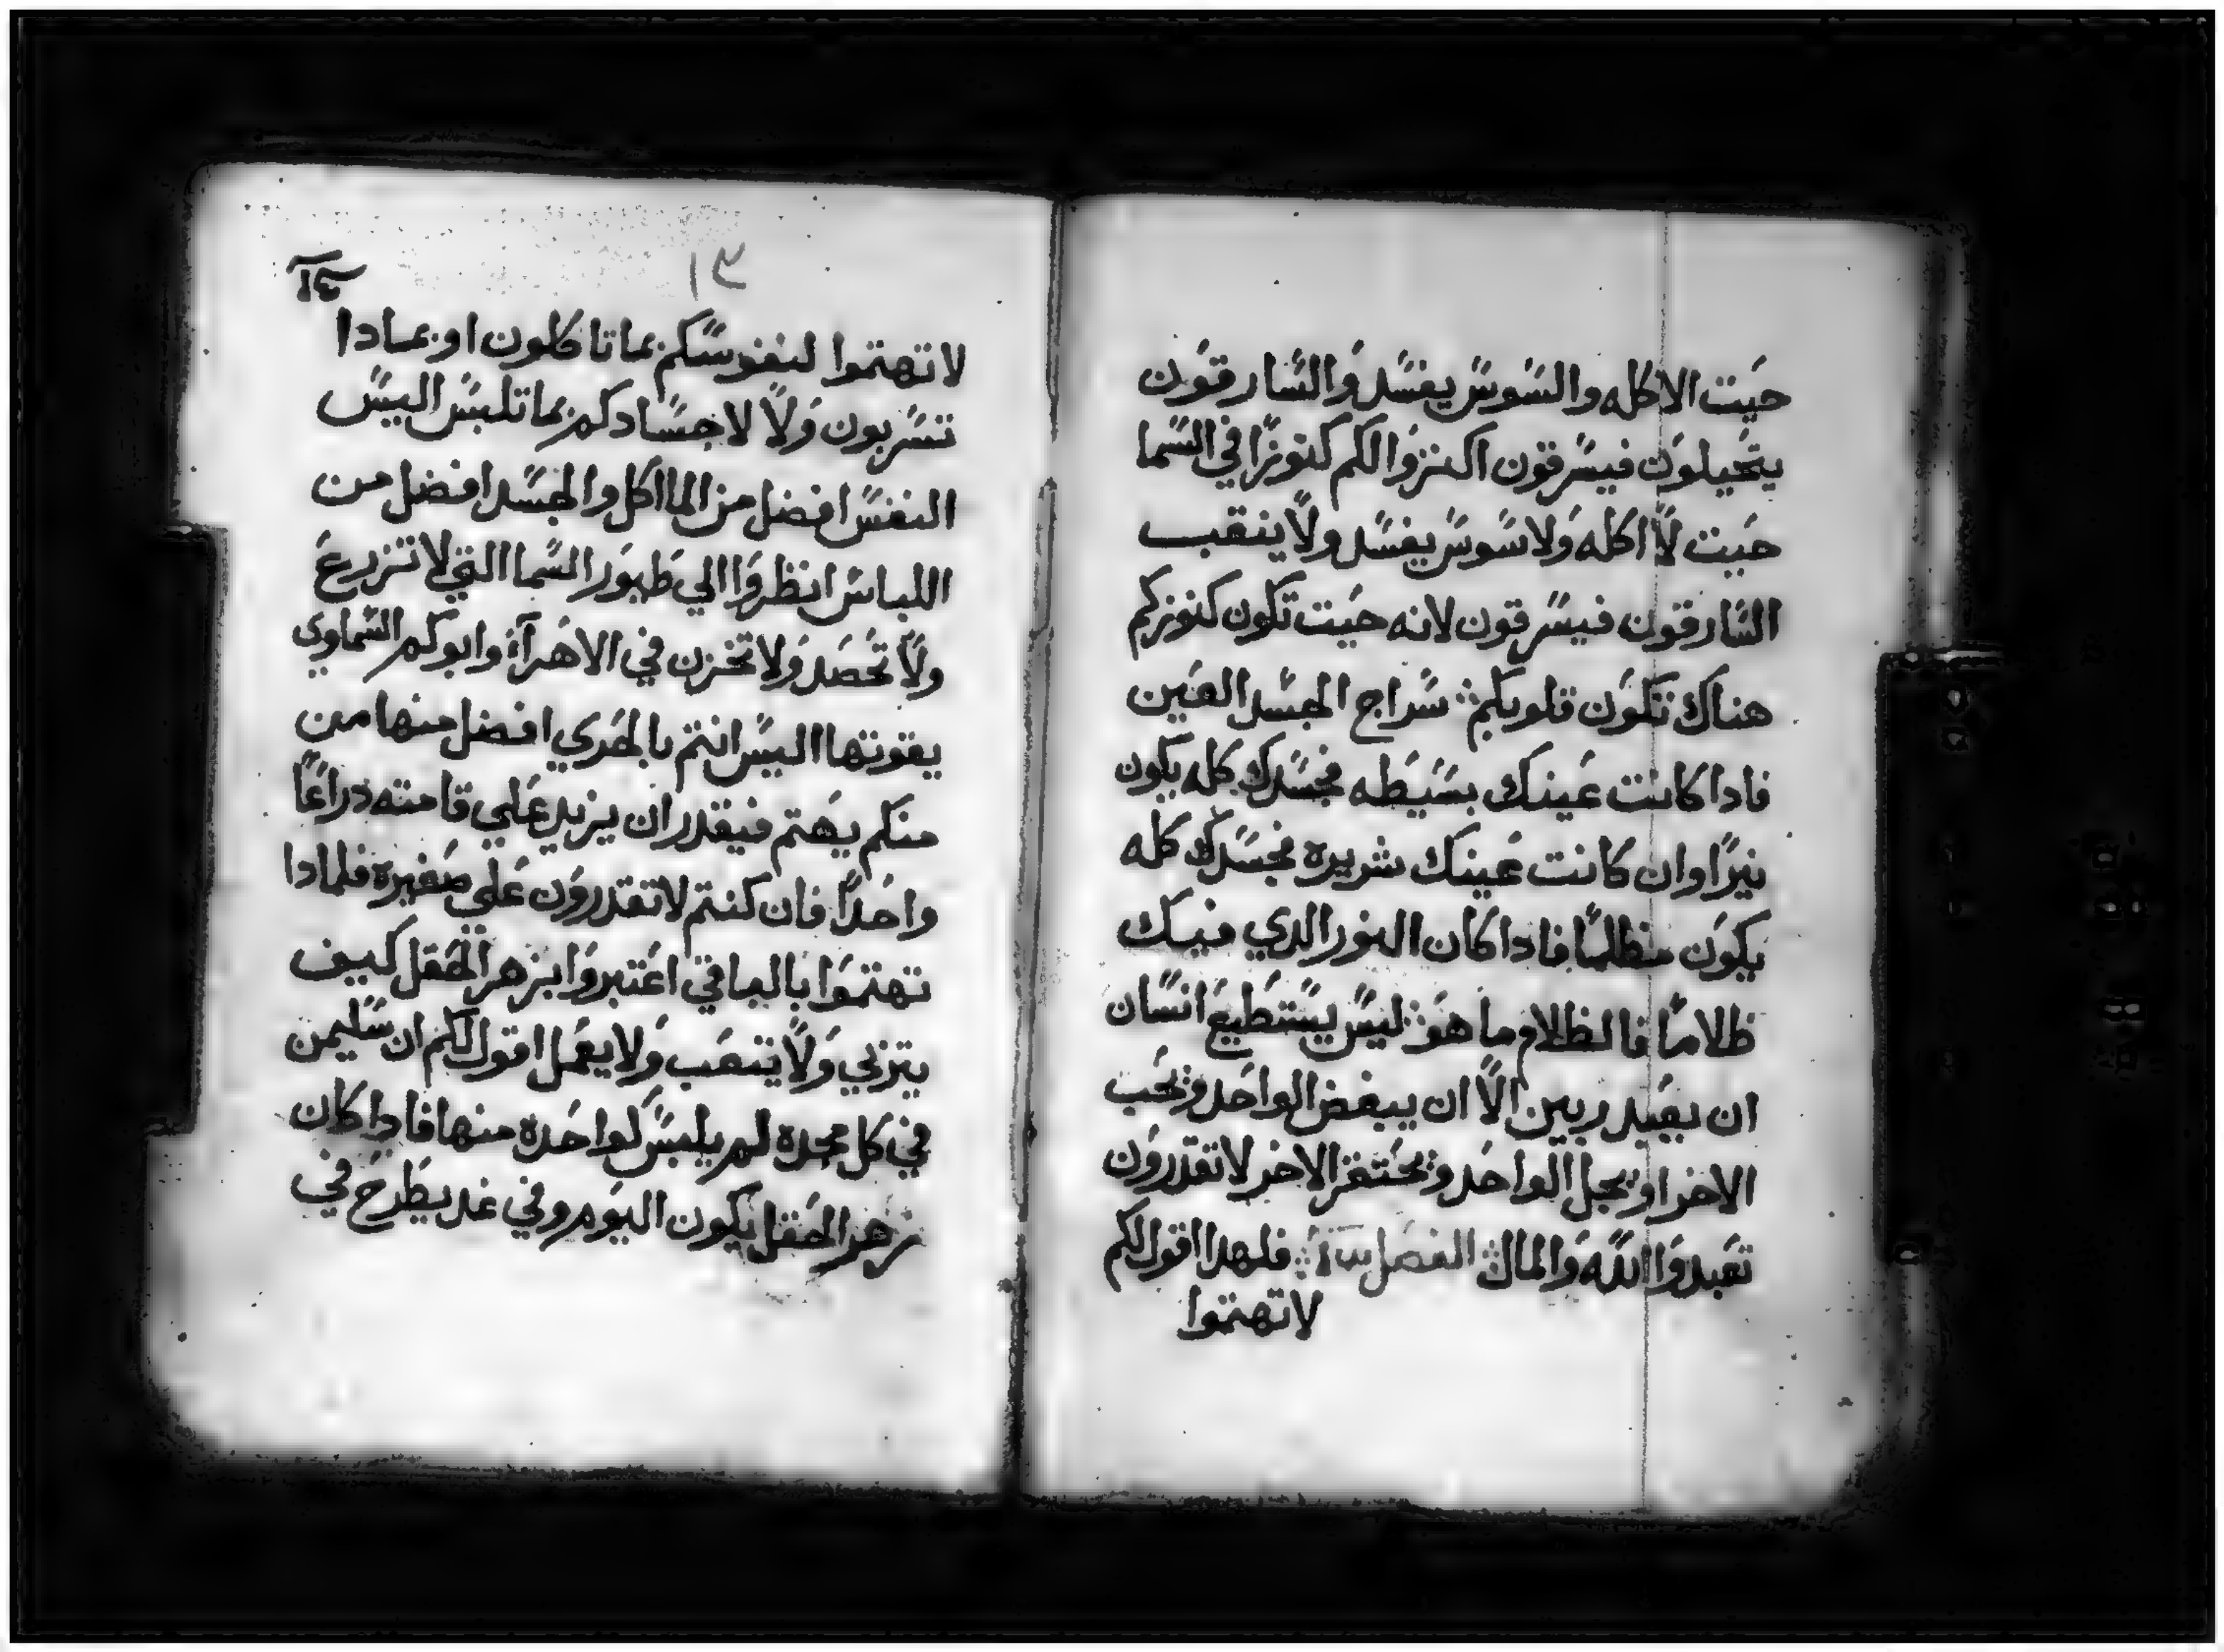 حيت الاكله والسوس يفسد والسارقون
يتحيلون فيسرقون اكنزوا لكم كنوزًا في السما
حيت لا اكله ولا سوس يفسد ولا ينقب
السارقون فيسرقون لانه حيت تكون كنوزكم
هناك تكون قلوبكم سراج الجسد العين
فادا كانت عينك بسيطه فجسدك كله يكون
نيرًا وان كانت عينك شريره فجسدك كله
يكون مظلمًا فادا كان النور الدي فيك
ظلامًا فالظلام ما هو ليس يستطيع انسان
ان يعبد ربين الا ان يبغض الواحد ويحب
الاخر او يجل الواحد ويحتقر الاخر لا تقدرون
تعبدوا الله والمال الفصل فلهدا اقول لكم
لا تهتموا
١٣
لا تهتموا لنفوسكم بما تاكلون او بمادا
تشربون ولا لاجسادكم بما تلبس اليس
النفس افضل من الماكل والجسد افضل من
اللباس انظروا الي طيور السما التي لا تزرع
ولا تحصد ولا تخزن في الاهرآء وابوكم السماوي
يقوتها اليس انتم بالحري افضل منها من
منكم يهتم فيقدر ان يزيد علي قامته دراعًا
واحدًا فان كنتم لا تقدرون علي صغيره فلمادا
تهتموا بالباقي اعتبروا بزهر الحقل كيف
يتربي ولا يتعب ولا يعمل اقول لكم ان سليمن
في كل مجده لم يلبس كواحده منها فادا كان
زهر الحقل يكون اليوم وفي غد يطرح في